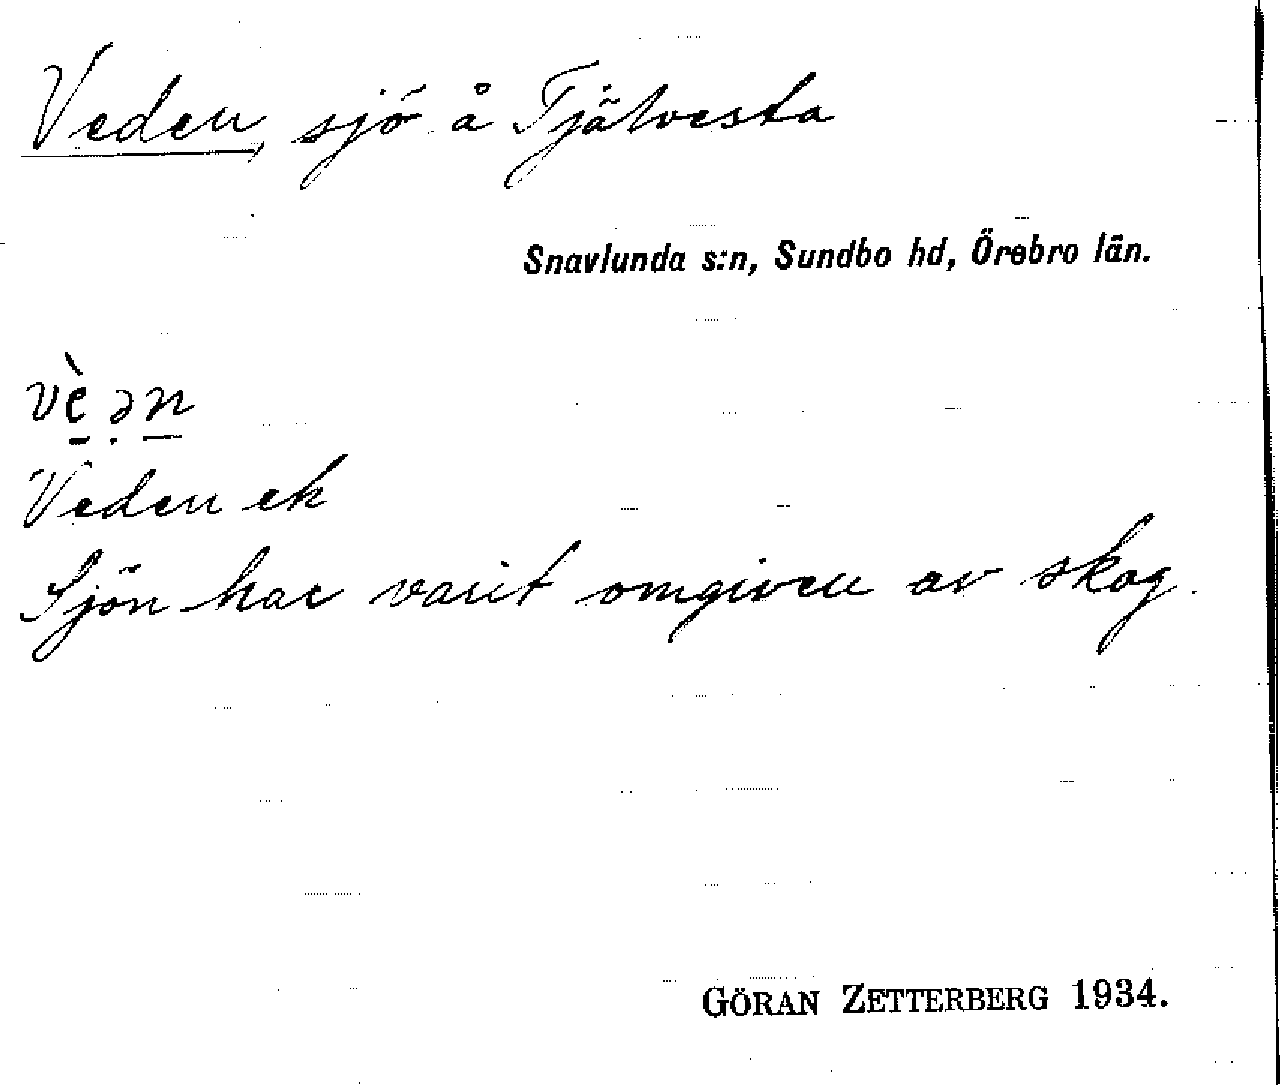 Veden, sjö å Tjälvesta
Snavlunda s:n, Sundbo hd, Örebro län.
vè̱ ə̣ṉ
Veden ek
Sjön har varit omgiven av skog.
GÖRAN ZETTERBERG 1934.